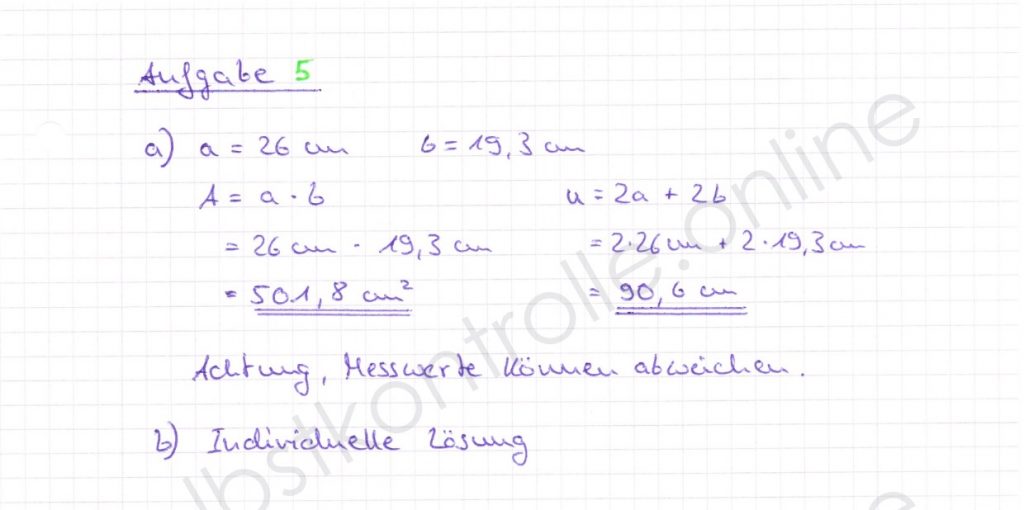 Aufgabe 5
a) a = 26 cm b = 19,3 cm
A = a · b u = 2a + 2b
= 26 cm · 19,3 cm = 2·26cm + 2·19,3cm
= 501,8 cm² = 90,6 cm
Achtung, Messwerte können abweichen.
b) Individuelle Lösung
lbstkontrolle.online